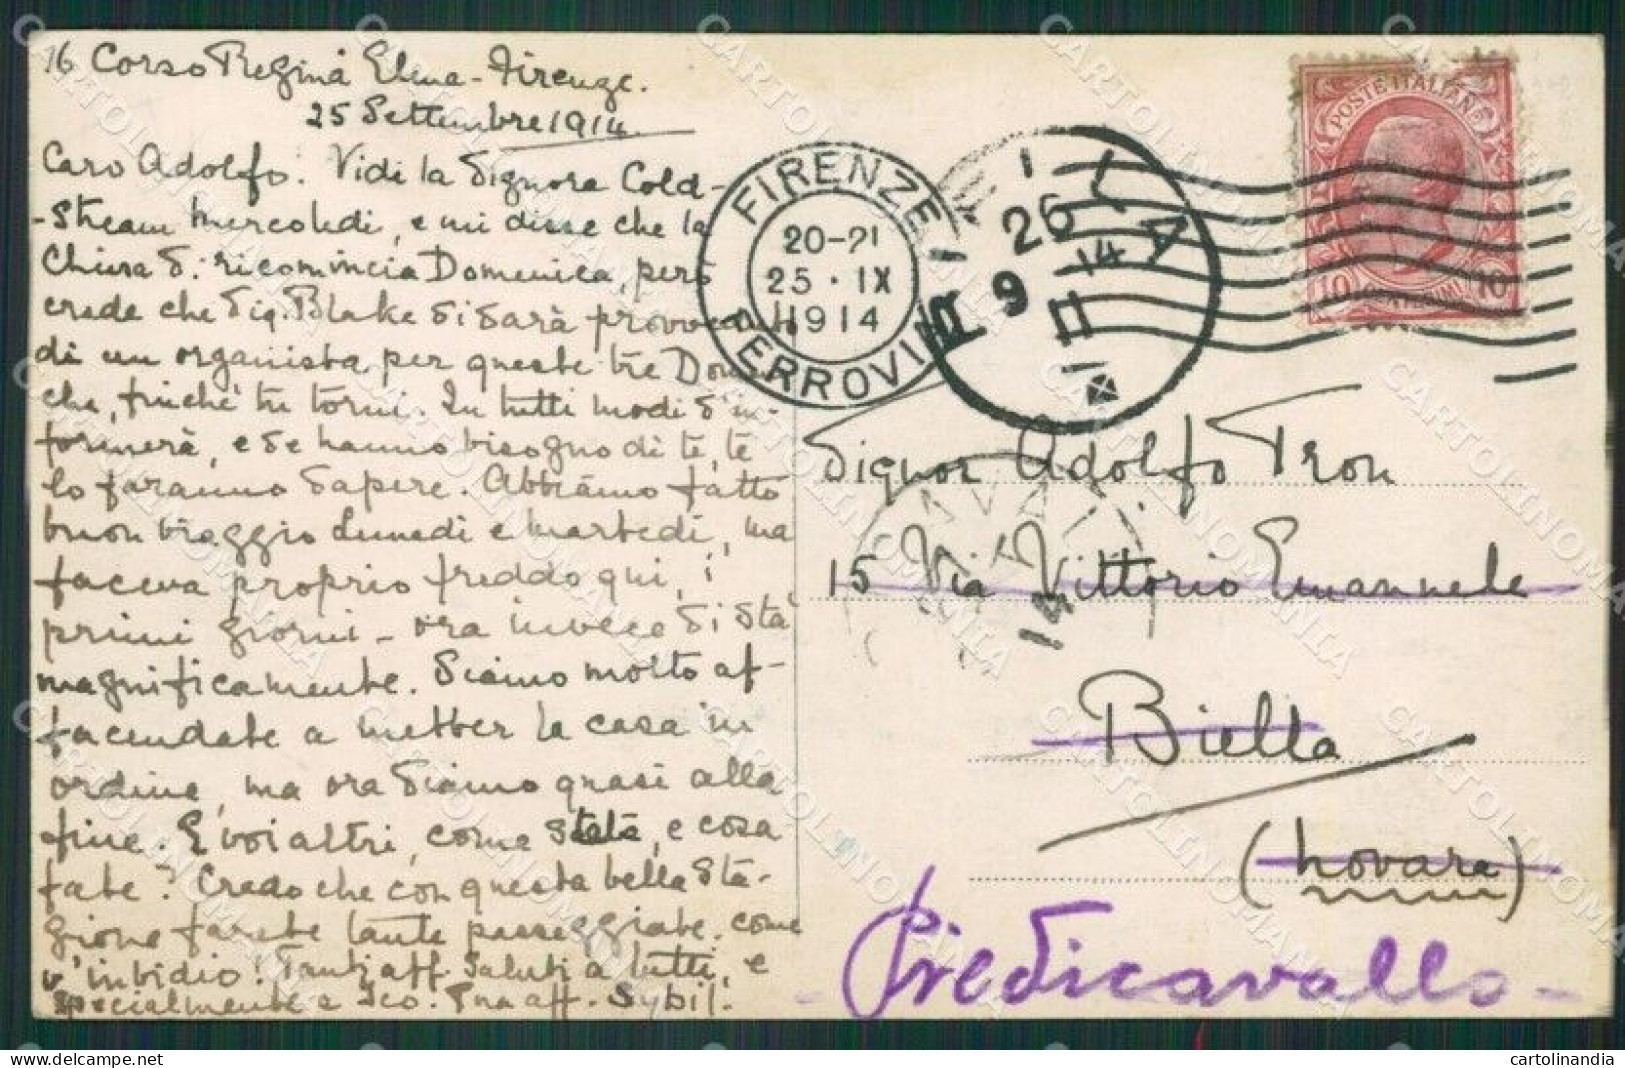 16 Corso Regina Elena - Firenze.
25 Settembre 1914
Caro Adolfo. Vidi la Signora Cold-
-stream Mercoledì, e mi disse che la
Chiesa si ricomincia Domenica, però
crede che Sig. Blake si sarà provveduto
di un organista per queste tre Dome
che, finchè tu torni. In tutti modi s'in-
formerà, e se hanno bisogno di te, te
lo faranno sapere. Abbiamo fatto
buon viaggio Lunedì e Martedì, ma
faceva proprio freddo qui, i
primi giorni - ora invece si sta
magnificamente. Siamo molto af-
faccendate a metter la casa in
ordine, ma ora siamo quasi alla
fine. E voi altri, come state, e cosa
fate? Credo che con questa bella sta-
gione farete tante passeggiate. come
v'invidio! Tanti aff. saluti a tutti, e
specialmente a Ico. Tua aff. Sybil.
POSTE ITALIANE
10 CENTESIMI 10
FIRENZE
20-21
25 · IX
1914
FERROVIA
26
9 14
Signor Adolfo Tron
15 Via Vittorio Emannele
Biella
(Novara)
Piedicavallo
CARTOLINOMANIA
cartolinandia